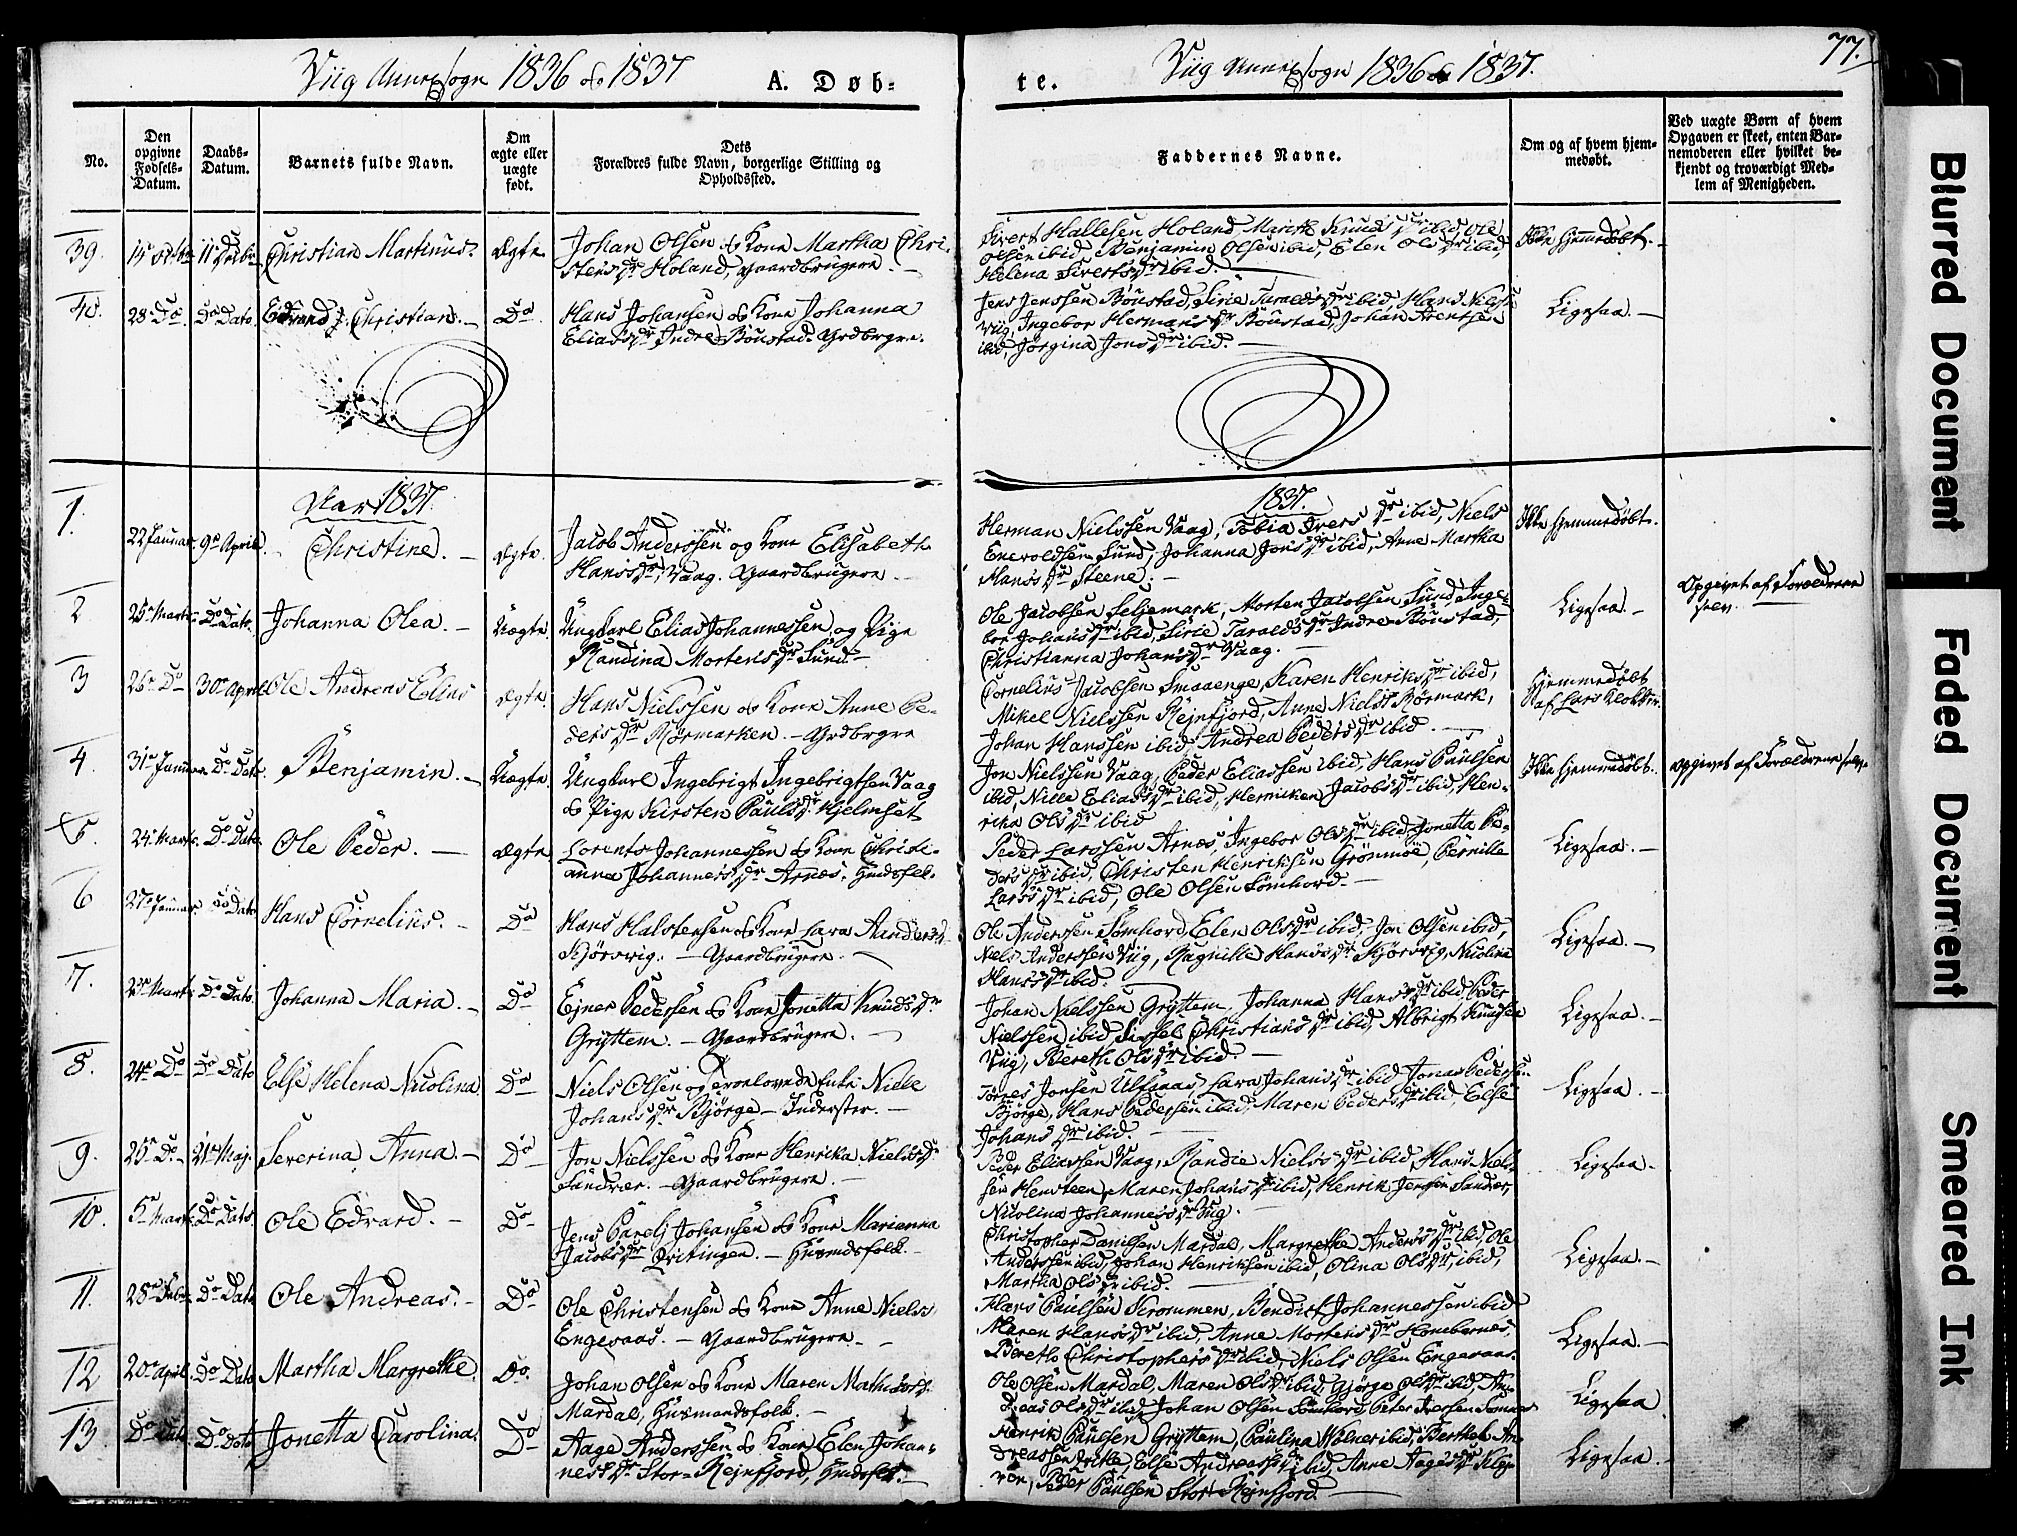 Viig Annexsogn 1836 & 1837
A. Døb-
te.
Viig Annexsogn 1836 & 1837.
77.
No.
Den opgivne Fødsels-Datum.
Daabs-Datum.
Barnets fulde Navn.
Om ægte eller uægte født.
Dets Forældres fulde Navn, borgerlige Stilling og Opholdssted.
Faddernes Navne.
Om og af hvem hjemmedøbt.
Ved uægte Børn af hvem Opgaven er skeet, enten Barnemoderen eller hvilket bekjendt og troværdigt Medlem af Menigheden.
39. Christian Martinus. Ægte.
Johan Olsen & Kone Martha Chri-
stensdr Holand, Gaardbrugere.
Sivert Hallesen Holand, Marith Knudsdr ibid, Ole
Olsen ibid, Benjamin Olsen ibid, Elen Olsdr ibid,
Helena Sivertsdr ibid.
Ikke hjemmedøbt.
40. 28 Do Do Dato. Edvard J. Christian. Do
Hans Johansen & Kone Johanna
Eliasdr Indre Bönstad. Grdbrgre.
Jens Jenssen Bönstad, Sirie Taraldsdr ibid, Hans Nielsen
Viig, Ingebor Hermansdr Bönstad, Johan Arentsen
ibid, Jörgina Jonsdr ibid.
Ligesaa.
Aar 1837.
1837.
1. 22 Januar. 9de April. Christine. Ægte.
Jacob Anderssen og Kone Elisabeth
Hansdr, Vaag. Gaardbrugere.
Herman Nielssen Vaag, Tobia Iversdr ibid, Niels
Enevoldsen Sund, Johanna Jonsdr ibid, Anne Martha
Hansdr Steene.
Ikke hjemmedøbt.
2 25 Marts. Do Dato. Johanna Olea. Uægte.
Ungkarl Elias Johannessen, og Pige
Randina Mortensdr Sund.
Ole Jacobsen Seljemark, Morten Jacobsen Sund, Inge-
bor Johansdr ibid, Sirie Taraldsdr Indre Bönstad,
Christianna Johansdr Vaag.
Ligesaa.
Opgivet af Forældrene
selv.
3 26 Do 30te April Ole Andreas Elias Ægte.
Hans Nielssen & Kone Anne Pe-
dersdr Rörmarken. Grdbrgre
Cornelius Jacobsen Smaaenge, Karen Henriksdr ibid,
Mikel Nielssen Rejnfjord, Anne Nielsd Rörmark,
Johan Hanssen ibid, Andrea Pedersdr ibid.
Hjemmedøbt
af Lars Klokker.
4. 31te Januar Do Dato. Benjamin. Uægte.
Ungkarl Ingebrigt Ingebrigtsen Vaag
& Pige Kirsten Paulsdr Hjelmset
Jon Nielssen Vaag, Peder Eliassen ibid, Hans Paulsen
ibid, Nille Eliasdr ibid, Henniken Jacobsdr ibid, Hen-
rika Olsdr ibid
Ikke hjemmedøbt.
Opgivet af Forældrene selv.
5. 24 Marts. Do Dato. Ole Peder. Ægte.
Lorents Johannessen & Kone Christi-
anna Johannesdr Arnes. Husfolk.
Peder Larssen Arnes, Ingebor Olsdr ibid, Jonetta Pe-
dersdr ibid, Christen Henriksen Grönmöe, Pernille
Larsdr ibid, Ole Olsen Somhord.
Ligesaa.
6 27 Januar. Do Dato. Hans Cornelius. Do
Hans Halstensen & Kone Lava Andersdr
Kjörsvig. Gaardbrugere.
Ole Anderssen Somhord, Elen Olsdr ibid, Jon Olsen ibid,
Niels Anderssen Viig, Ragnille Hansdr Kjörsvig, Nicolina
Hansdr ibid.
Ligesaa.
7. 23 Marts Do Dato. Johanna Maria. Do
Ejner Pedersen & Kone Jonetta Knudsdr
Gryttem. Gaardbrugere.
Johan Nielssen Gryttem, Johanna Hansdr ibid, Peder
Nielssen ibid, Sirsel Christiansdr ibid, Albrigt Knudsen
Viig, Bereth Olsdr ibid.
Ligesaa.
8. 24 Do Do Dato Else Helena Nicolina. Do
Niels Olsen og trolovede Enke Nille
Johansdr Björge. Inderster.
Törres Jonsen Ulsnaas, Lava Johansdr ibid, Jonas Pedersen
Björge, Hans Pedersen ibid, Maren Pedersdr ibid, Else
Johansdr ibid.
Ligesaa.
9. 25 Do 21 Maj. Severina Anna. Do
Jon Nielssen & Kone Henrika Nielsdr
Sandvær. Gaardbrugere.
Peder Eliassen Vaag, Randie Nielsdr ibid, Hans Niels-
sen Hensteen, Maren Johansdr ibid, Henrik Jensen Sandvær,
Nicolina Johannesdr Viig.
Ligesaa.
10. 5 Marts Do Dato. Ole Edvard. Do
Jens Parelj Johansen & Kone Marianna
Jacobsdr Qvitingen. Husmdsfolk.
Christopher Danilsen Mardal, Margrethe Andersdr ibid, Ole
Anderssen ibid, Johan Henriksen ibid, Olina Olsdr ibid,
Martha Olsdr ibid.
Ligesaa.
11. 28 Febr. Do Dato Ole Andreas. Do
Ole Christensen & Kone Anne Niels
Engesaas. Gaardbrugere.
Hans Paulsen Strommen, Bendict Johannessen ibid
Maren Hansdr ibid, Anne Mortensdr Honebernes,
Bereth Christophersdr ibid, Niels Olsen Engesaas.
Ligesaa.
12 20 April. Do Dato Martha Margrethe. Do.
Johan Olsen & Kone Maren
Mardal, Husmandsfolk.
Ole Olsen Mardal, Maren Olsdr ibid, Gjörge Olsdr ibid, An-
dreas Olsdr ibid, Johan Olsen Somhord, Peter Iversen
Ligesaa
13. Do Dato Do Dato Jonetta Carolina. Do
Aage Anderssen & Kone Elen Johan-
nesdr Stor-Rejnfjord, Husfolk.
Henrik Paulsen Gryttem, Paulina Wolner ibid, Berthel An-
dreassen Lekke, Else Andreasdr ibid, Anne Aagesdr
Peder Paulsen Stor Rejnfjord.
Ligesaa.
Blurred Document
Faded Document
Smeared Ink